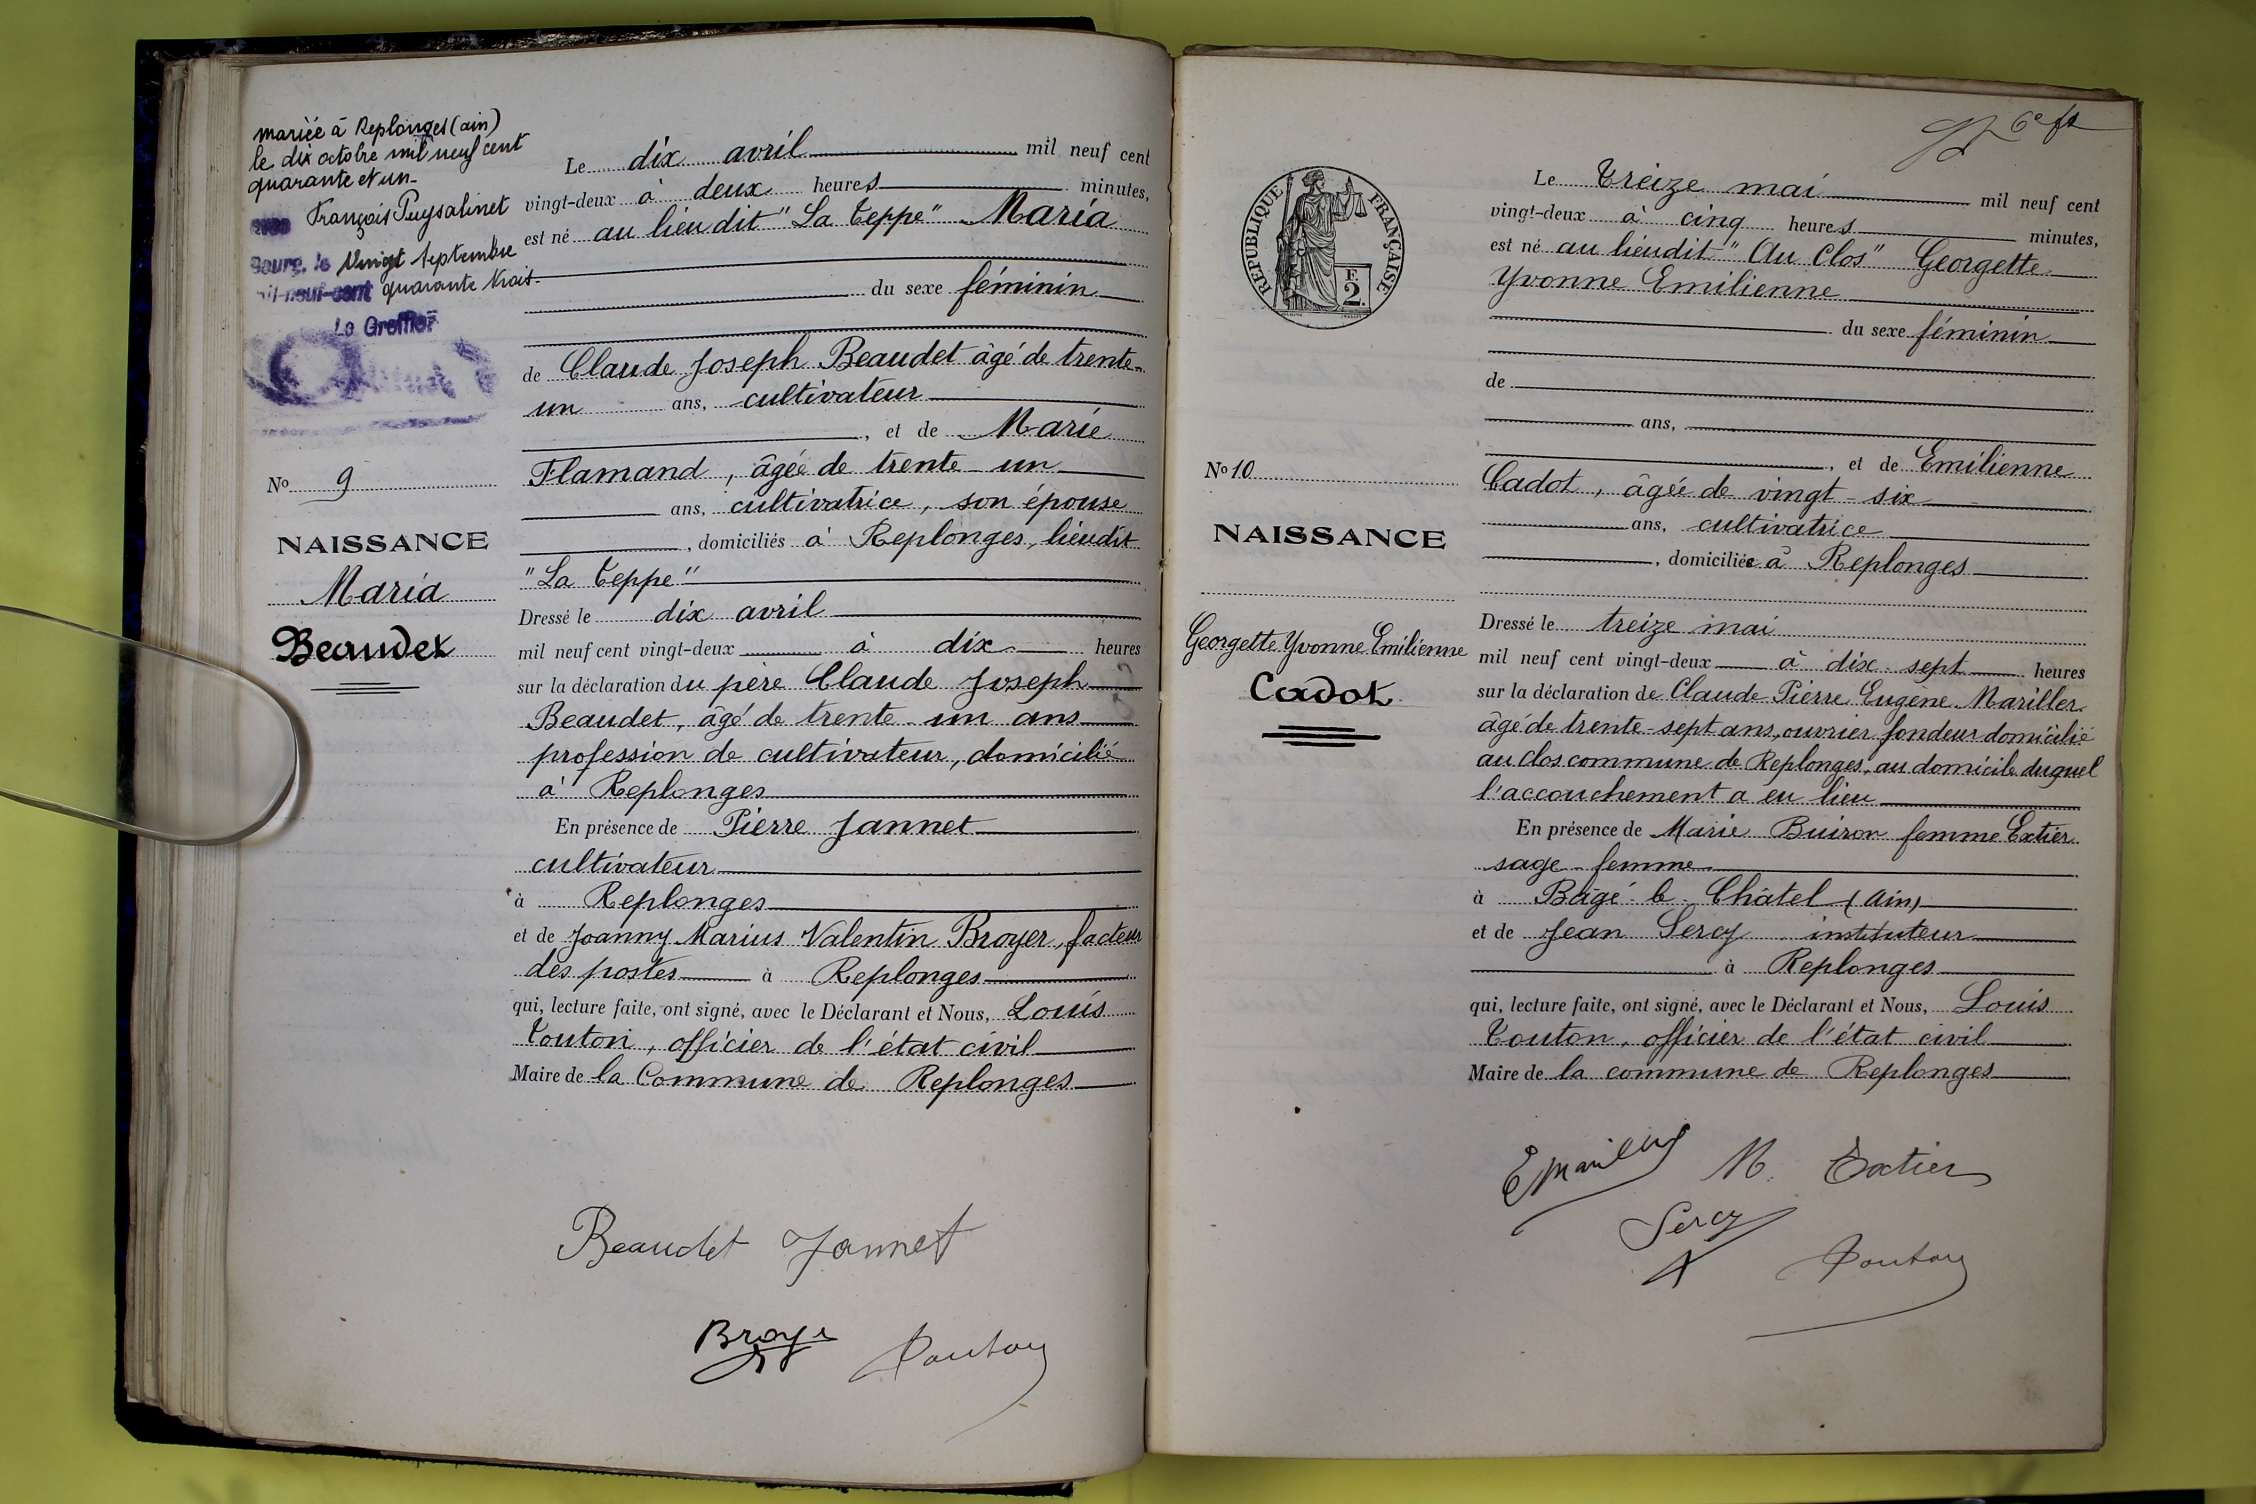 mariée à Replonges (ain)
le dix octobre mil neuf cent
quarante et un
François Puysalinet
Bourg, le Vingt Septembre
mil-neuf-cent quarante trois.
Le Greffier
No 9
NAISSANCE
Maria
Beaudet
Le dix avril mil neuf cent
vingt-deux à deux heures minutes,
est né au lieu dit "La Teppe" Maria
du sexe féminin
de Claude Joseph Beaudet âgé de trente-
un ans, cultivateur
, et de Marie
Flamand, âgée de trente-un
ans, cultivatrice, son épouse
, domiciliés à Replonges, lieudit
"La Teppe"
Dressé le dix avril
mil neuf cent vingt-deux à dix heures
sur la déclaration du père Claude Joseph
Beaudet, âgé de trente-un ans
profession de cultivateur, domicilié
à Replonges
En présence de Pierre Jannet
cultivateur
à Replonges
et de Joanny Marius Valentin Broyer, facteur
des postes à Replonges
qui, lecture faite, ont signé, avec le Déclarant et Nous, Louis
Touton, officier de l'état civil
Maire de la Commune de Replonges
Beaudet Jannet
Broye Touton
6e ft
REPUBLIQUE FRANÇAISE
F.
2.
No 10
NAISSANCE
Georgette Yvonne Emilienne
Cadot
Le treize mai mil neuf cent
vingt-deux à cinq heures minutes,
est né au lieudit "Au Clos" Georgette
Yvonne Emilienne
du sexe féminin
de
ans,
, et de Emilienne
Cadot, âgée de vingt-six
ans, cultivatrice
, domiciliée à Replonges
Dressé le treize mai
mil neuf cent vingt-deux à dix-sept heures
sur la déclaration de Claude Pierre Eugène Mariller
âgé de trente-sept ans, ouvrier fondeur domicilié
au clos commune de Replonges, au domicile duquel
l'accouchement a eu lieu
En présence de Marie Buiron femme Extier
sage-femme
à Bâgé-le-Châtel (Ain)
et de Jean Sercy instituteur
à Replonges
qui, lecture faite, ont signé, avec le Déclarant et Nous, Louis
Touton, officier de l'état civil
Maire de la commune de Replonges
E Mariller M. Extier
Sercy
Touton